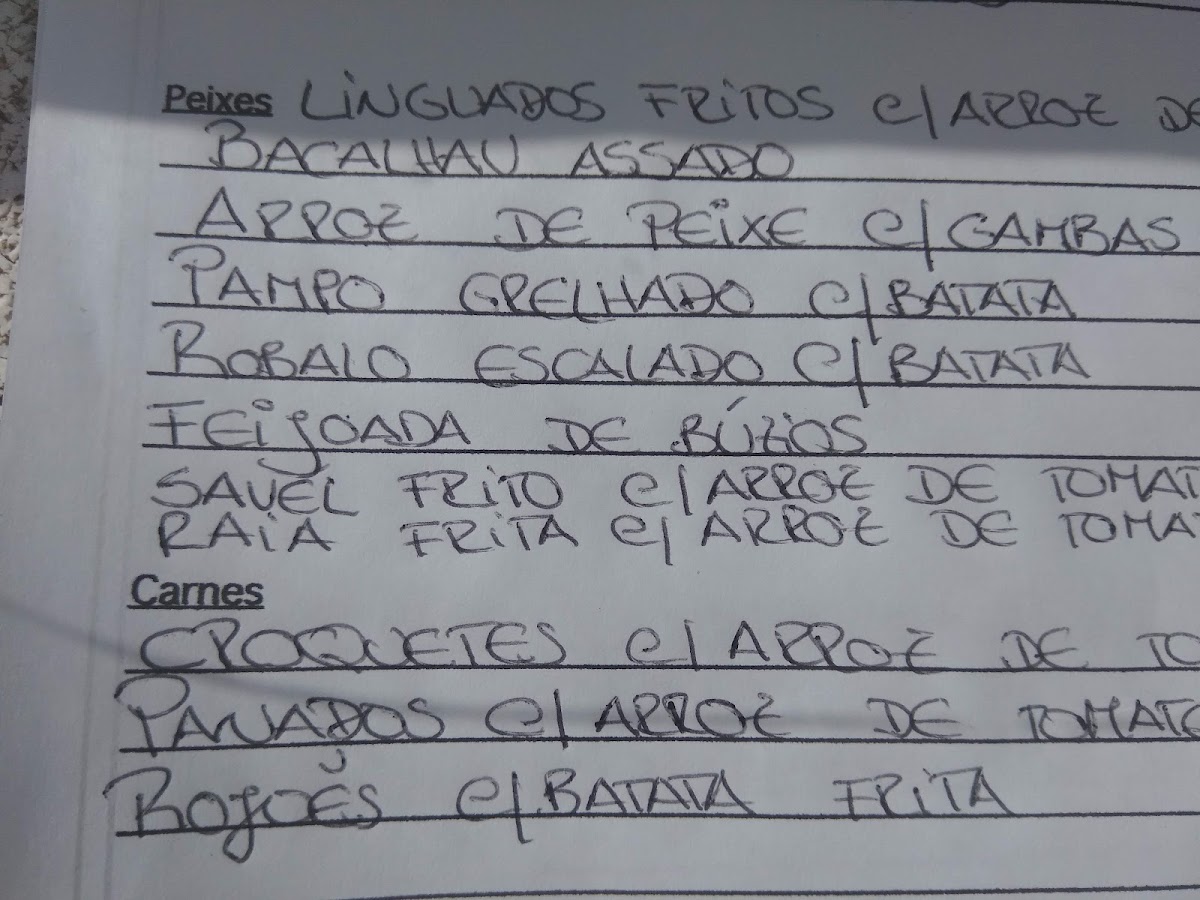 Peixes LINGUADOS FRITOS C/ ARROZ DE
BACALHAU ASSADO
ARROZ DE PEIXE C/ GAMBAS
PAMPO GRELHADO C/ BATATA
ROBALO ESCALADO C/ BATATA
FEIJOADA DE BÚZIOS
SAVEL FRITO C/ ARROZ DE TOMAT
RAIA FRITA C/ ARROZ DE TOMA
Carnes
CROQUETES C/ ARROZ DE TO
PANADOS C/ ARROZ DE TOMATE
ROJÕES C/ BATATA FRITA